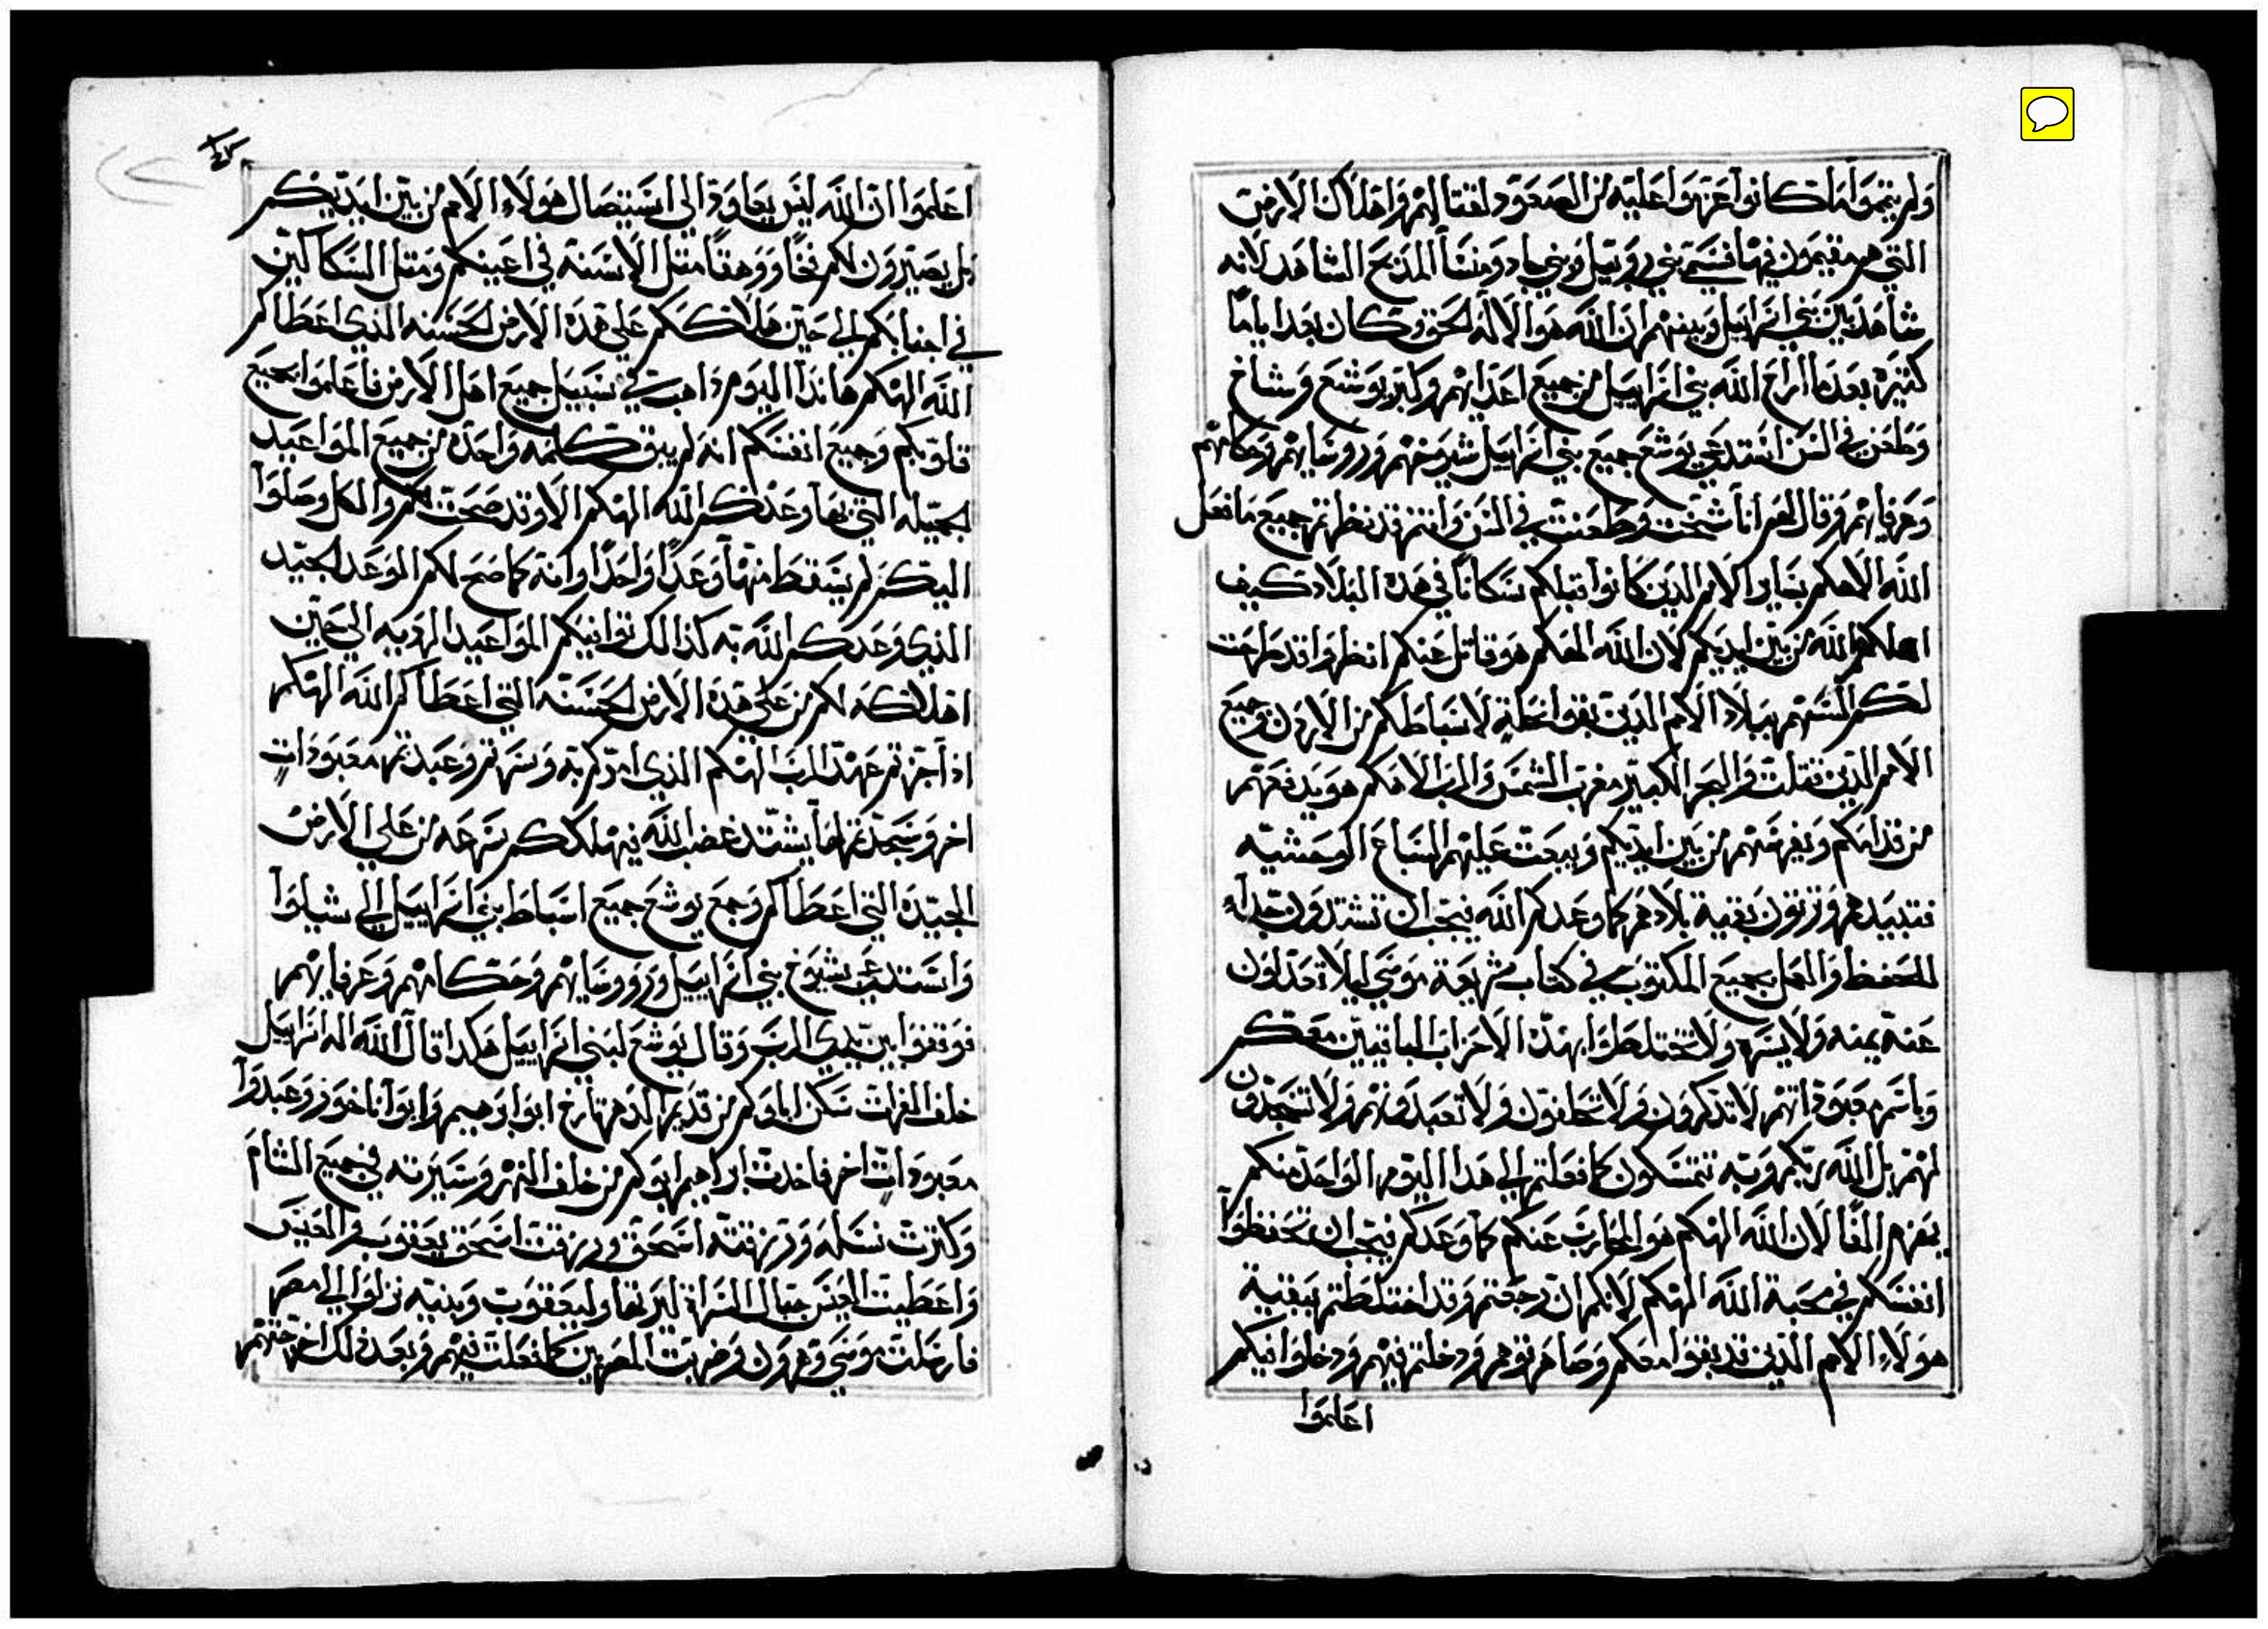 ولم يتموا ما كانوا عزموا عليه من الصعود لقتالهم واهلاك الارض
التي هم مقيمون فيها فسمي بني روبيل وبني جاد ومنشا المذبح الشاهد لانه
شاهد بين بني اسراييل وبينهم ان الله هوا الاله الحق وكان بعد اياما
كثيره بعدما اراح الله بني اسراييل من جميع اعدايهم وكبر يوشع وشاخ
وطعن في السن استدعي يوشع جميع بني اسراييل شيوخهم وروسايهم وحكامهم
وعرفايهم وقال لهم انا شخت وطعنت في السن وانتم قد نظرتم جميع ما فعل
الله الاهكم بساير الامم الذين كانوا قبلكم سكانا في هذه البلاد كيف
اهلكهم الله من بين ايديكم لان الله الهكم هو قاتل عنكم انظروا قد طرحت
لكم السهم ببلاد الامم الذين بقوا نحلة لاسباطكم من الاردن وجميع
الامم الذين قتلت والبحر الكبير مغرب الشمس والرب الاهكم هو يدفعهم
من قدامكم ويقرضهم من بين ايديكم ويبعت عليهم السباع الوحشيه
فتبيدهم وترتون بقية بلادهم كما وعدكم الله فيجب ان تشتدون جداً
للحفظ والعمل بجميع المكتوب في كتاب شريعة موسي ليلا تعدلون
عنه يمنه ولا يسره ولا تختلطوا بهذه الاحزاب الباقيين معكم
وباسم معبوداتهم لا تذكرون ولا تحلفون ولا تعبدونهم ولا تسجدون
لهم بل الله ربكم وبه تتمسكون كما فعلتم الي هذا اليوم الواحد منكم
يهزم الفا لان الله الهكم هو المحارب عنكم كما وعدكم فيجب ان تحفظوا
انفسكم في محبة الله الهكم لانكم ان رجعتم وقد اختلطتم ببقية
هولاء الامم الذين قد بقوا معكم وصاهرتوهم ودخلتم فيهم ودخلوا فيكم
اعلموا
اعلموا ان الله ليس يعاود الي استيصال هولاء الامم من بين ايديكم
بل يصيرون لكم فخا ووهقا متل الاسنه في اعينكم ومتل السكاكين
في اجنابكم الي حين هلاككم علي هذه الارض الحسنه الذي اعطاكم
الله الهكم هانذا اليوم ذاهب في سبيل جميع اهل الارض فاعلموا بجميع
قلوبكم وجميع انفسكم انه لم يبق كلمه واحده من جميع المواعيد
الجميله التي بها وعدكم الله الهكم الا وقد صحت لكم والكل وصلوا
اليكم لم يسقط منها وعدا واحدا وانه كما صح لكم الوعد الجيد
الذي وعدكم الله به كذالك توافيكم المواعيد الرديه الي حين
اهلاكه لكم من علي هذه الارض الحسنه التي اعطاكم الله الهكم
اذا جزتم عهد الرب الهكم الذي امركم به وسرتم وعبدتم معبودات
اخر وسجدتم لها يشتد غضب الله فيهلككم سرعه من علي الارض
الجيده التي اعطاكم وجمع يوشع جميع اسباط بني اسراييل الي شيلوا
واستدعي شيوخ بني اسراييل وروسايهم وحكامهم وعرفايهم
فوقفوا بين يدي الرب وقال يوشع لبني اسراييل هكدا قال الله اله اسراييل
خلف الفرات سكن اباوكم من قديم الدهر تارخ ابو ابرهيم وابوا ناخور وعبدوا
معبودات اخر فاخدت ابراهيم ابوكم من خلف النهر وسيرته في جميع الشام
وكترت نسله ورزقته اسحق ورزقت اسحق يعقوب والعيس
واعطيت العيس جبال السراة ليرتها وليعقوب وبنيه نزلوا الي مصر
فارسلت موسي وهرون وضربت المصريين كما فعلت فيهم وبعد ذلك اخرجتهم